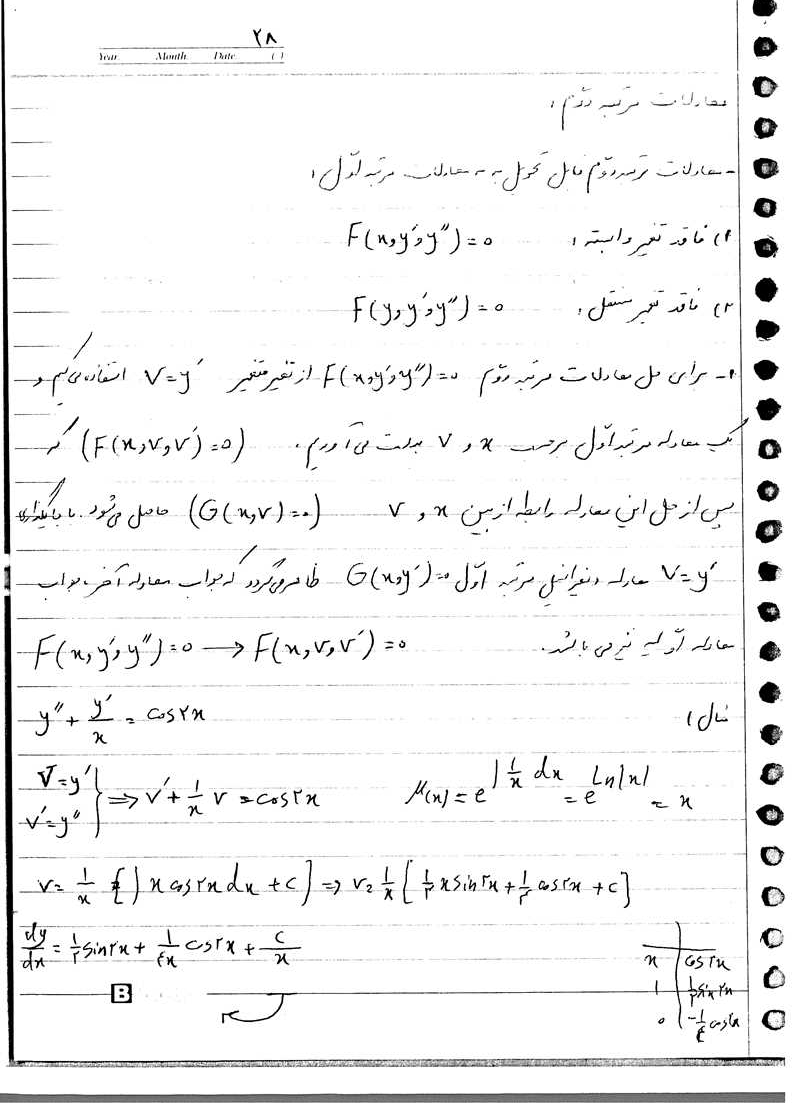 ۲۸
Year. Month. Date. ( )
معادلات مرتبه دوّم :
- معادلات مرتبه دوّم قابل تحویل به معادلات مرتبه اوّل :
۱) فاقد متغیر وابسته : F(x,y',y'')=0
۲) فاقد متغیر مستقل : F(y,y',y'')=0
۱- برای حل معادلات مرتبه دوّم F(x,y',y'')=0 از تغییر متغیر V=y' استفاده می‌کنیم و
یک معادله مرتبه اوّل برحسب x و V بدست می‌آوریم. (F(x,V,V')=0) که
پس از حل این معادله رابطه‌ای بین x و V (G(x,V)=0) حاصل می‌شود. با جایگذاری
V=y' معادله دیفرانسیل مرتبه اوّل G(x,y')=0 ظاهر می‌گردد که جواب معادله آخر، جواب
معادله اولیه نیز می‌باشد. F(x,y',y'')=0 → F(x,V,V')=0
مثال : y''+y'/x = cos۲x
V=y'
V'=y'' } ⇒ V'+1/x V = cos۲x μ(x)=e^∫1/x dx = e^Ln|x| = x
V= 1/x [∫x cos۲x dx + C] ⇒ V= 1/x [1/۲ x sin۲x + 1/۴ cos۲x + C]
dy/dx = 1/۲ sin۲x + 1/۴x cos۲x + C/x
x | cos۲x
1 | 1/۲ sin۲x
0 | -1/۴ cos۲x
B